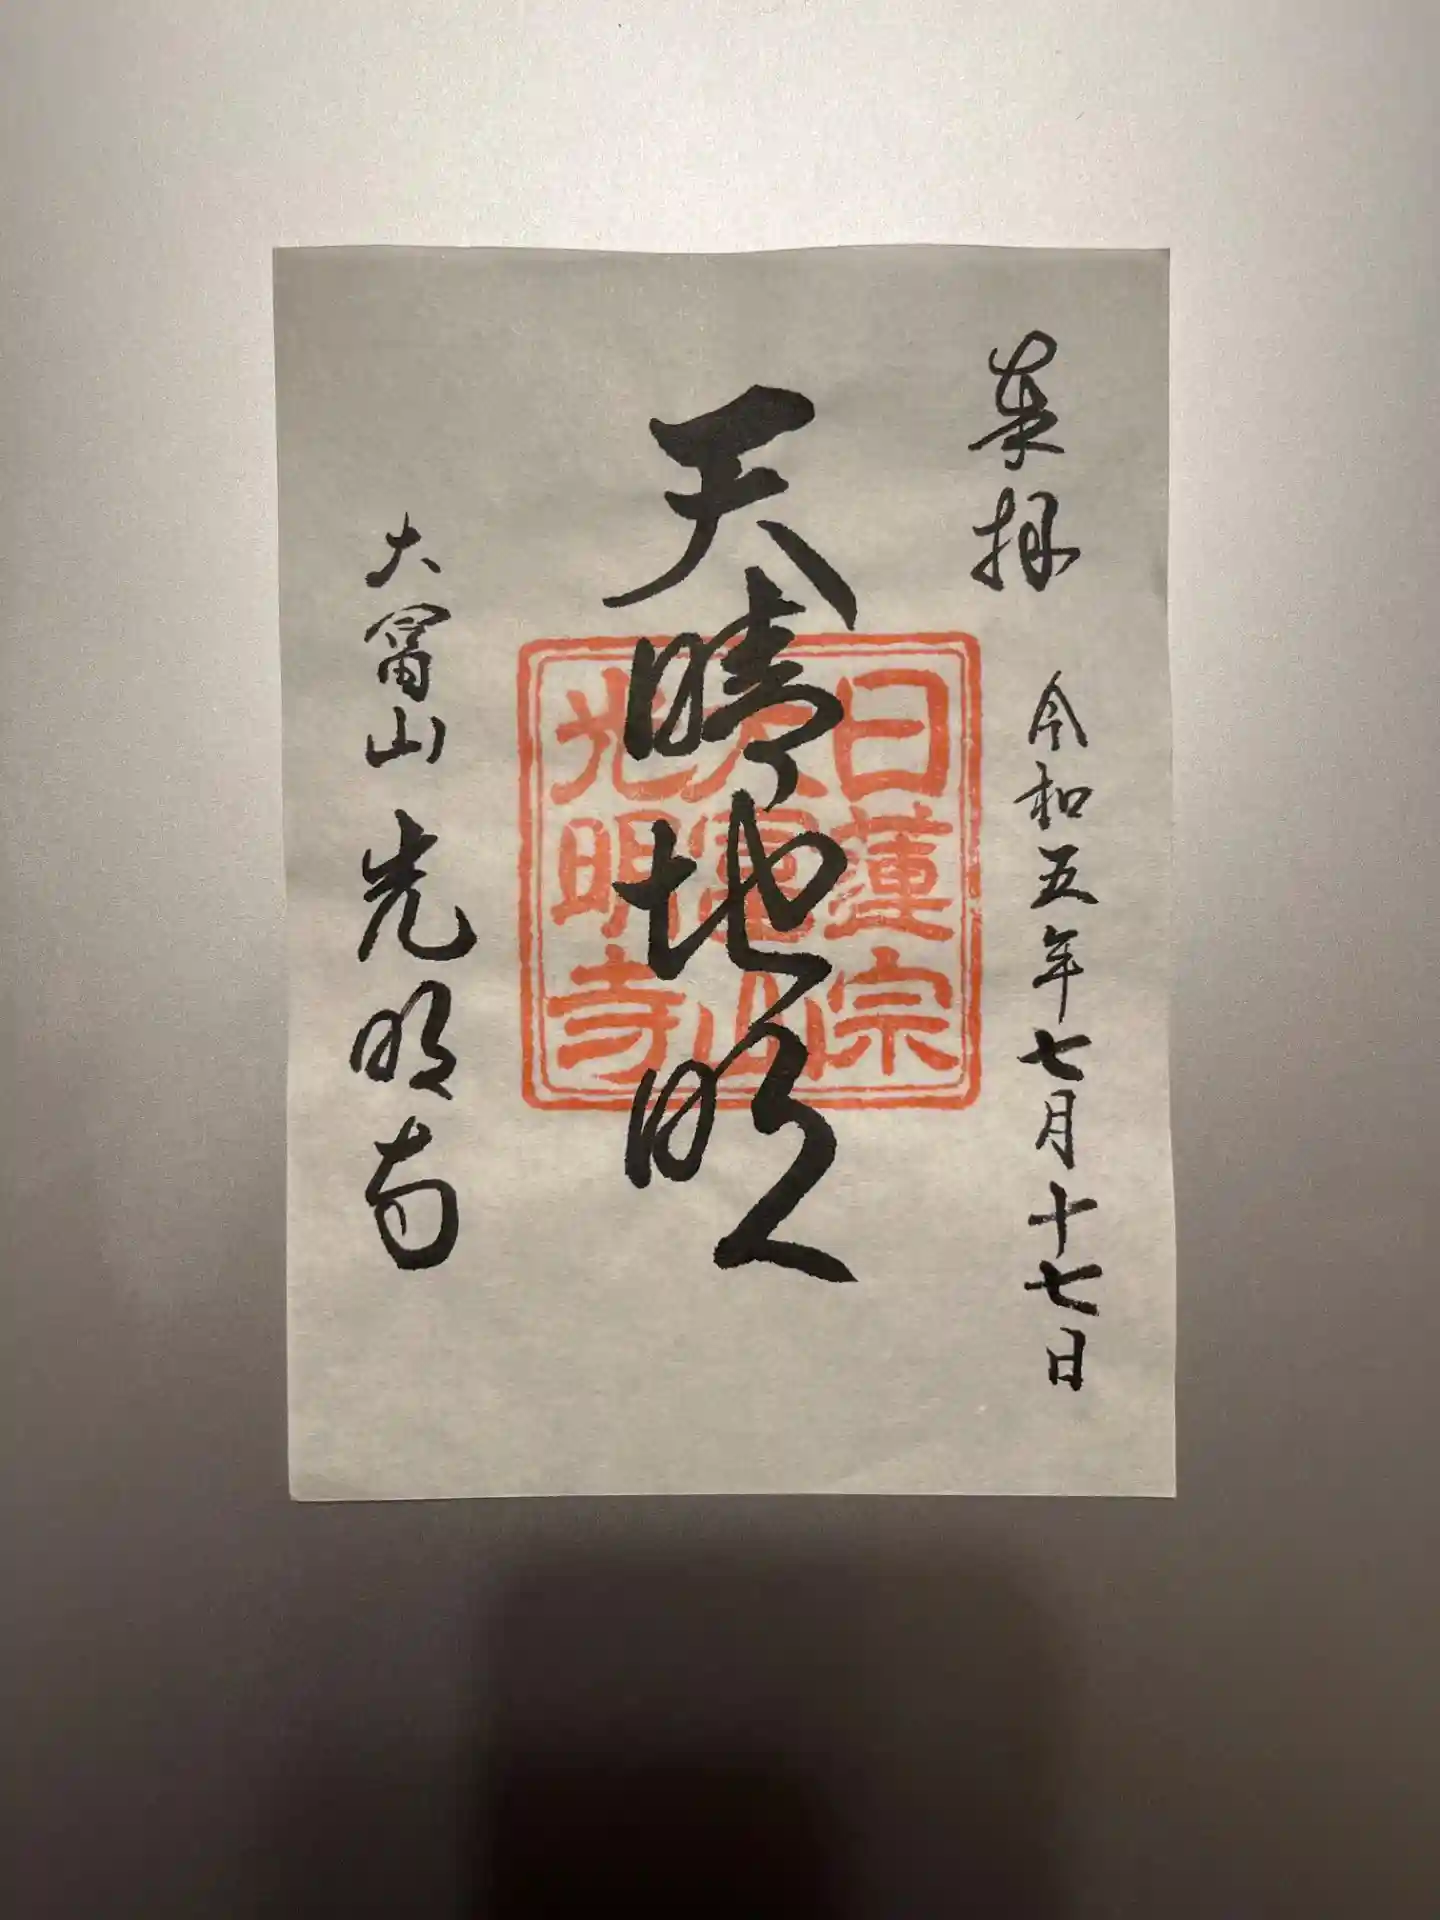 奉拝 令和五年七月十七日
天晴地明
大富山 光明寺
日蓮宗
大富山
光明寺